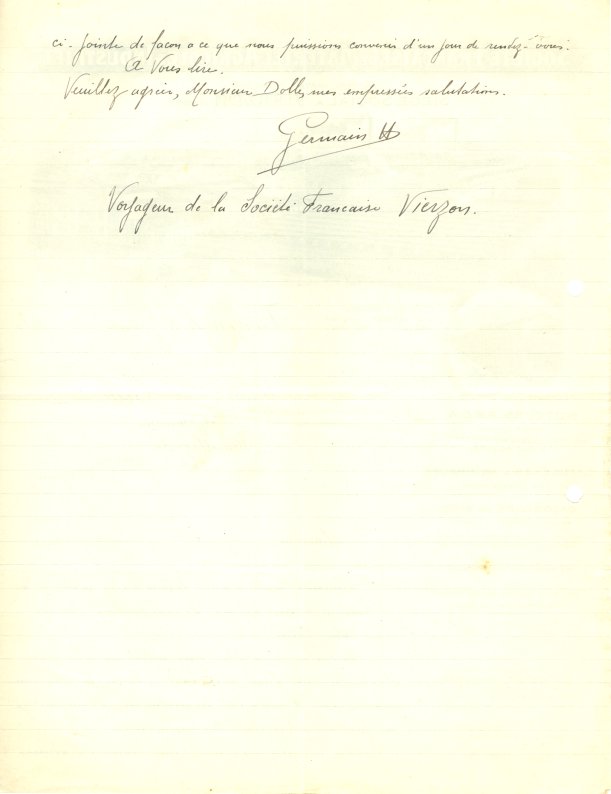 ci-jointe de façon a ce que nous puissions convenir d'un jour de rendez-vous.
A Vous lire.
Veuillez agréer, Monsieur Dolle, mes empressées salutations.
Germain H
Voyageur de la Société Francaise Vierzon.